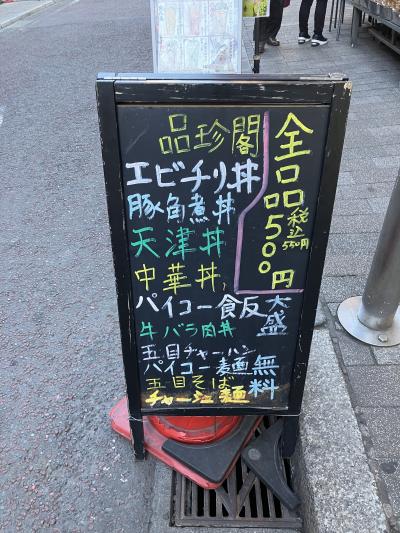 品珍閣
全品500円
税込550円
エビチリ丼
豚角煮丼
天津丼
中華丼
パイコー食反
牛バラ肉丼
五目チャーハン
パイコー麺
五目そば
チャーシュー麺
大盛
無料